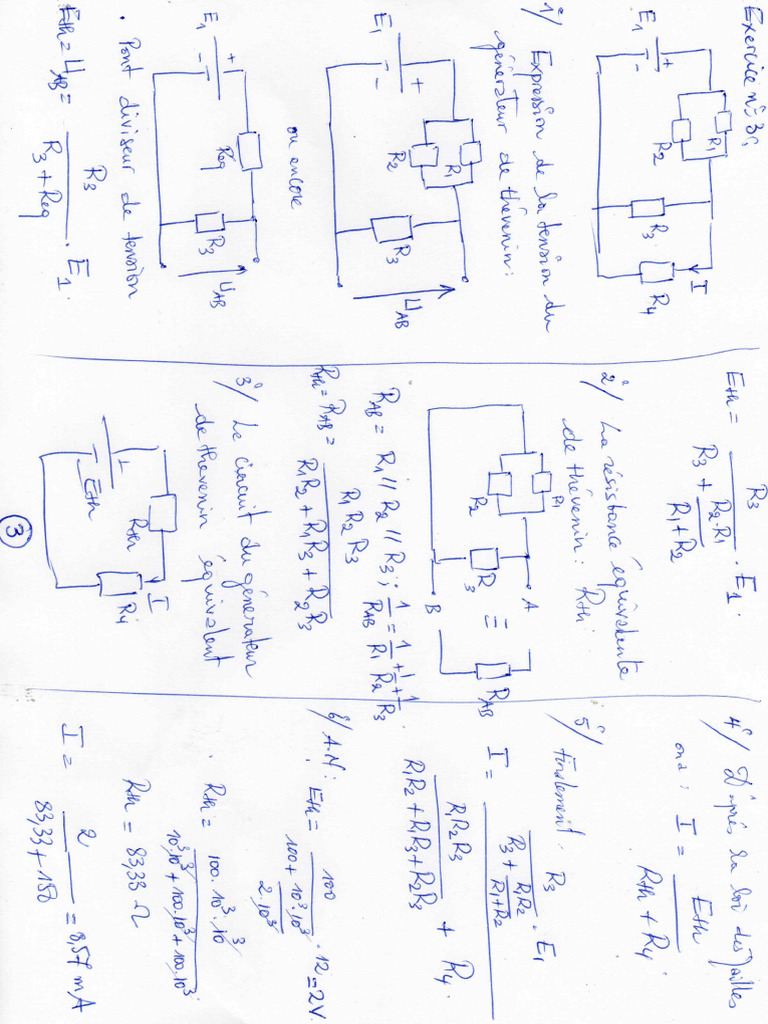 Exercice n°3:
E1
+
-
R1
R2
R3
R4
I
1°/ Expression de la tension du
générateur de thévenin:
E1
+
-
R1
R2
R3
UAB
ou encore
E1
+
-
Req
R3
UAB
• Pont diviseur de tension
Eth = UAB = R3 / (R3 + Req) · E1.
Eth = R3 / (R3 + R2.R1 / (R1 + R2)) · E1.
2°/ La résistance équivalente
de thévenin: Rth:
R1
R2
R3
A
B
≡
RAB
RAB = R1 // R2 // R3; 1/RAB = 1/R1 + 1/R2 + 1/R3.
Rth = RAB = R1 R2 R3 / (R1R2 + R1R3 + R2R3)
3°/ Le circuit du générateur
de thevenin équivalent
Eth
Rth
I
R4
3
4°/ D'après la loi des mailles
on a: I = Eth / (Rth + R4).
5°/ finalement:
I = (R3 / (R3 + R1R2 / (R1+R2)) · E1) / (R1R2R3 / (R1R2 + R1R3 + R2R3) + R4).
6/ A.N: Eth = 100 / (100 + 10³.10³ / 2.10³) · 12 = 2V.
• Rth = 100.10³.10³ / (10³.10³ + 100.10³ + 100.10³)
Rth = 83,33 Ω
I = 2 / (83,33 + 150) = 8,57 mA